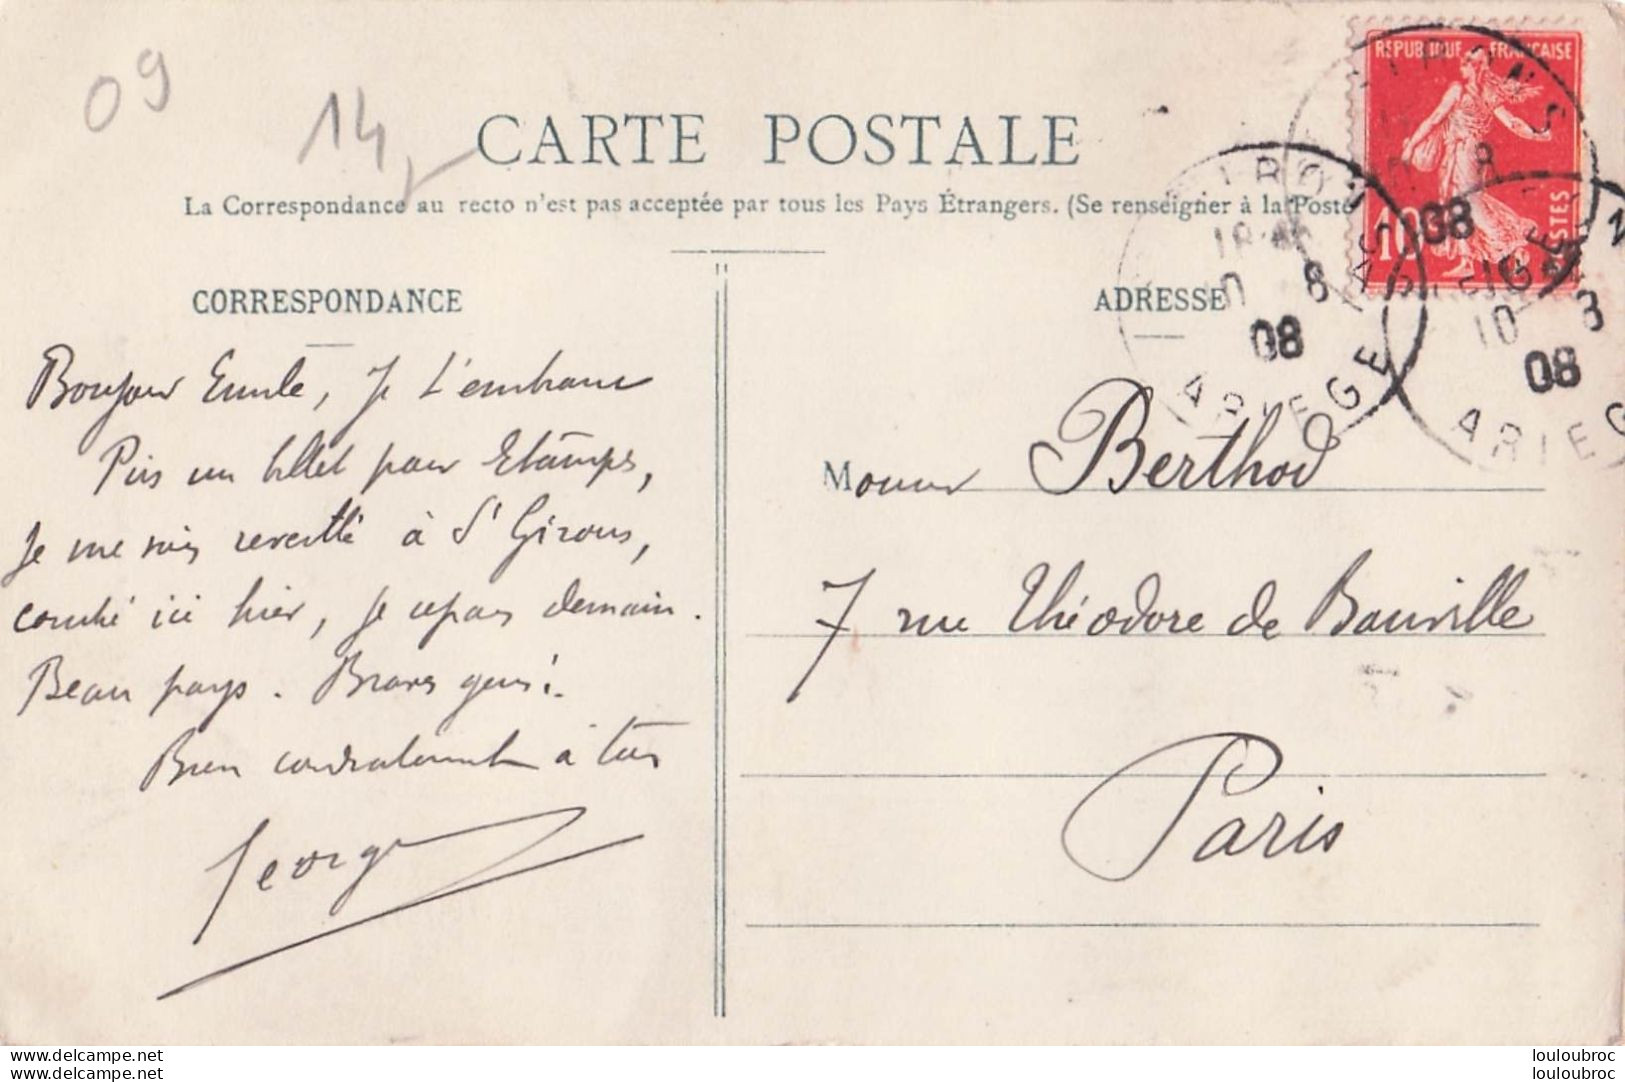 09
14
CARTE POSTALE
La Correspondance au recto n'est pas acceptée par tous les Pays Étrangers. (Se renseigner à la Poste
REPUBLIQUE FRANÇAISE
10
POSTES
08
10 8
08
ARIEGE
10 8
08
ARIEG
CORRESPONDANCE
Bonjour Emile, Je t'embrasse
Pris un billet pour Etampes,
Je me suis réveillé à St Girons,
couché ici hier, je repars demain.
Beau pays. Braves gens!.
Bien cordialement à toi
Georges
ADRESSE
Monsieur Berthod
7 rue Théodore de Banville
Paris
delcampe.net
louloubroc
delcampe.net
louloubroc